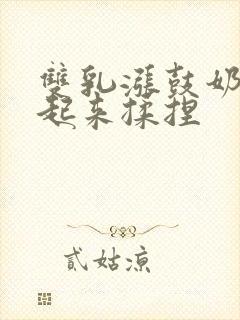 雙乳漲鼓奶
起来揉捏
貳姑涼